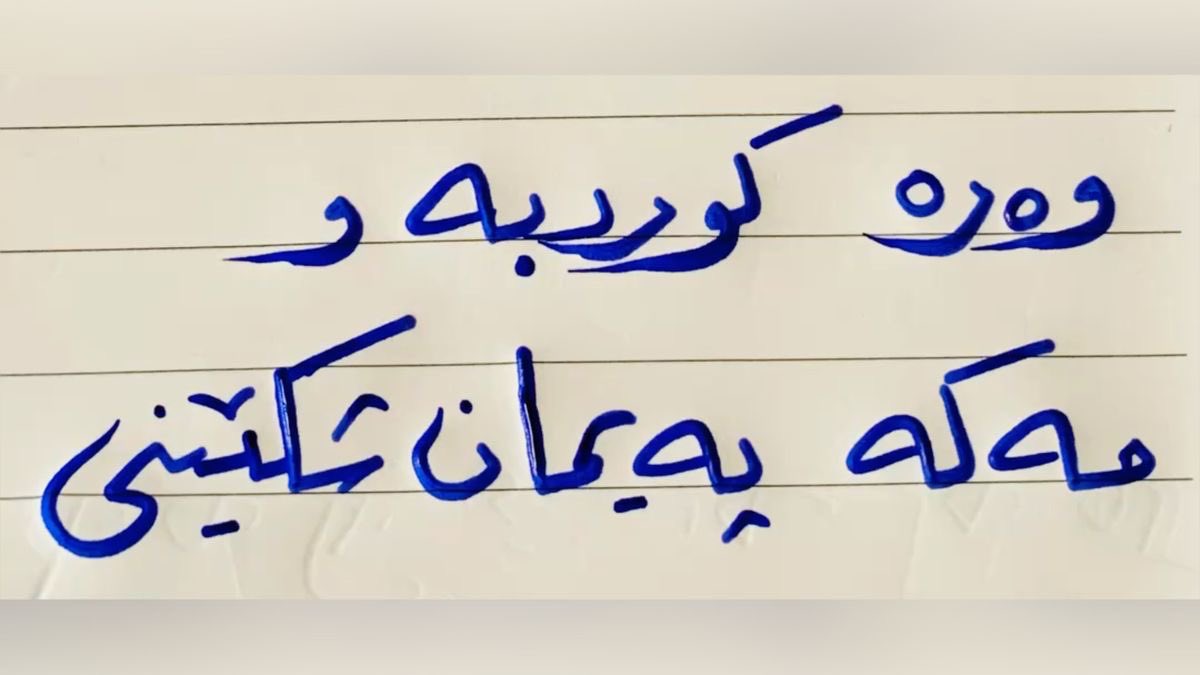 وەرە کورد بە و
مەکە پەیمان شکێنی